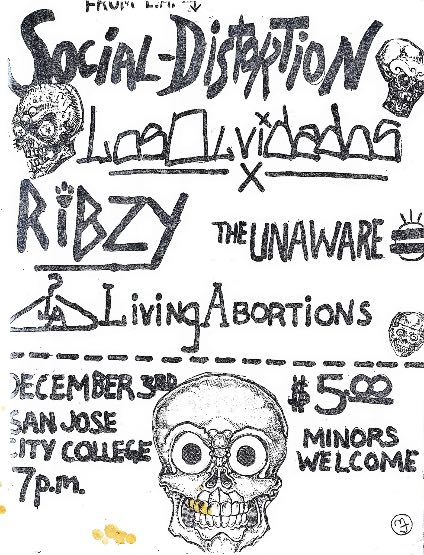 FROM L.A.
SOCIAL-DISTORTION
LosOlvidados
X
RiBZY
THE UNAWARE
LA LivingAbortions
DECEMBER 3RD
$5.00
SAN JOSE
CITY COLLEGE
7p.m.
MINORS
WELCOME